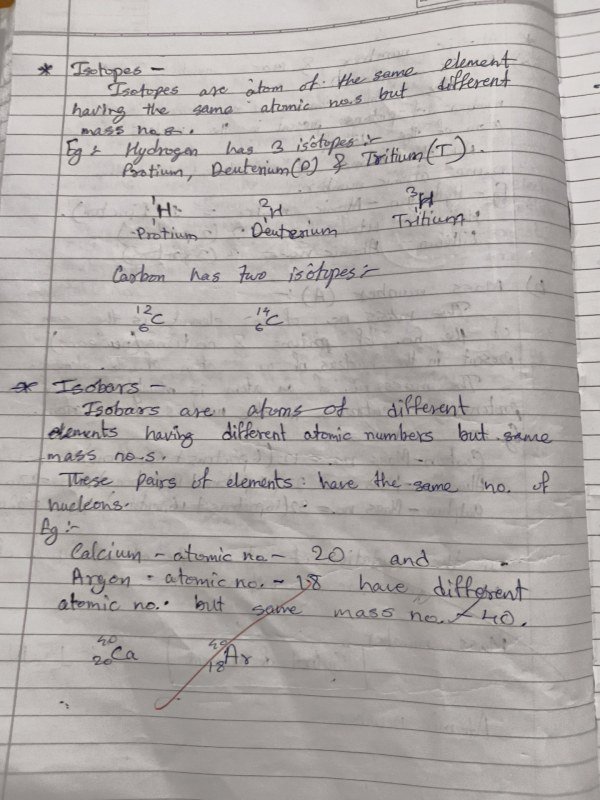 * Isotopes -
Isotopes are atom of the same element
having the same atomic no.s but different
mass no.s.
Eg : Hydrogen has 3 isotopes :-
Protium, Deuterium(D) & Tritium(T).
¹₁H ²₁H ³₁H
Protium Deuterium Tritium
Carbon has two isotopes :-
¹²₆C ¹⁴₆C
* Isobars -
Isobars are atoms of different
elements having different atomic numbers but same
mass no.s.
These pairs of elements have the same no. of
nucleons.
Eg :-
Calcium - atomic no - 20 and
Argon - atomic no. - 18 have different
atomic no. but same mass no. - 40.
⁴⁰₂₀Ca ⁴⁰₁₈Ar